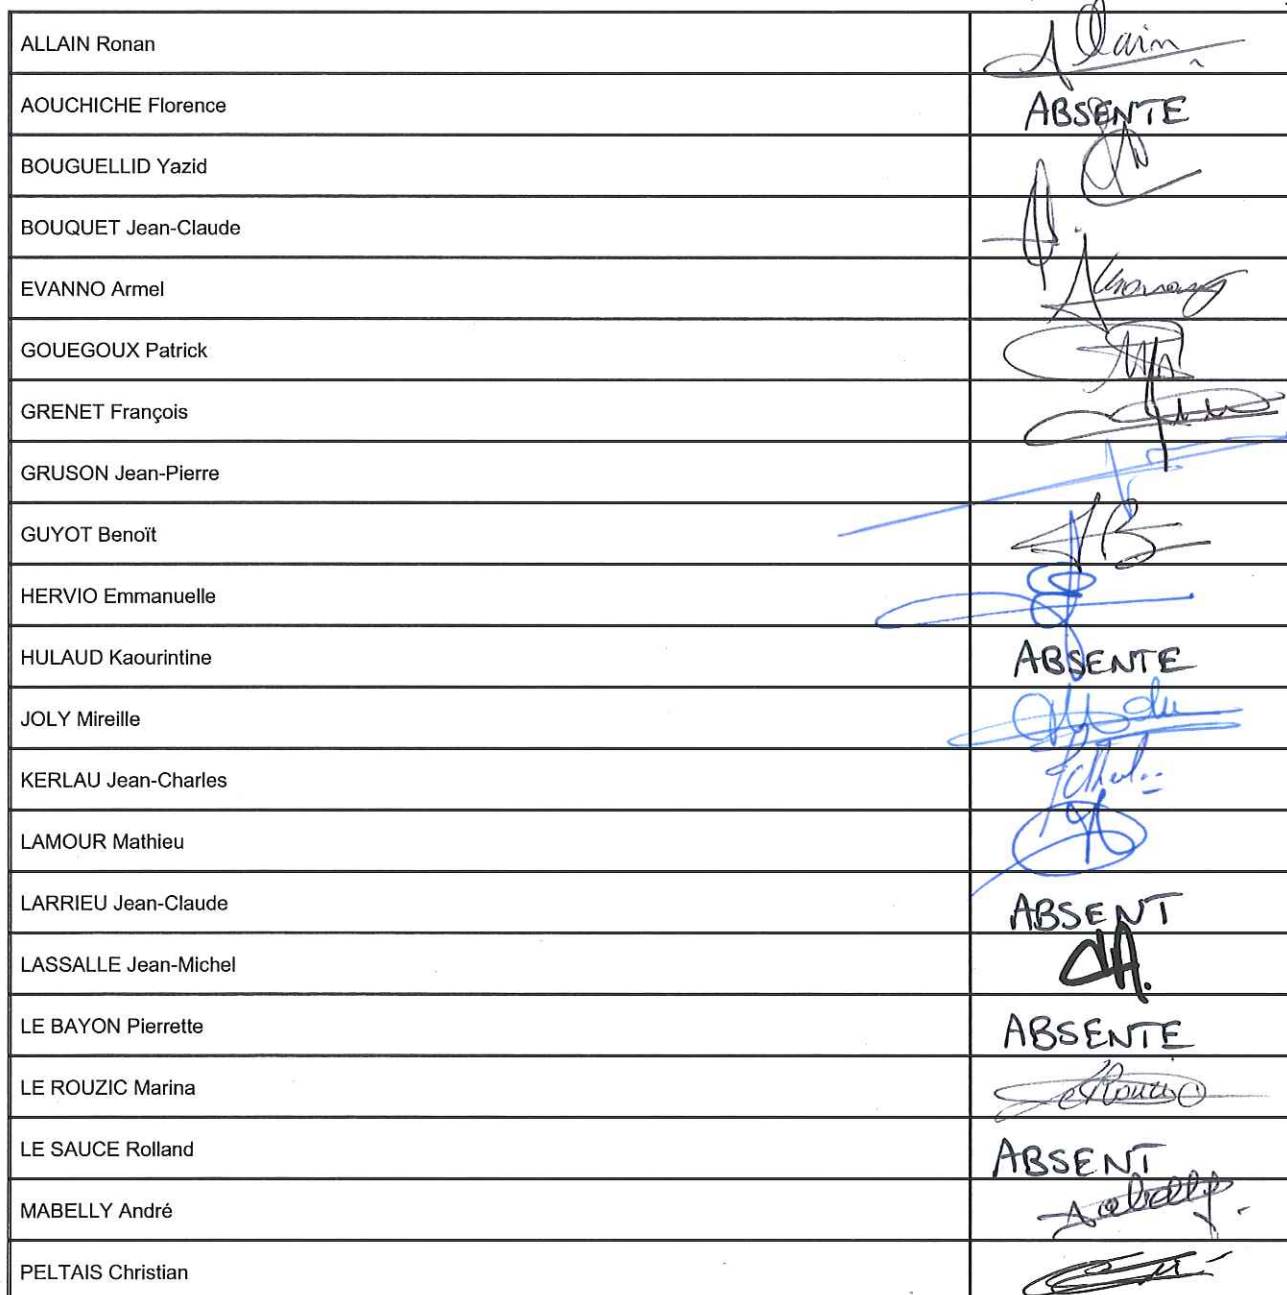 ALLAIN Ronan Allain
AOUCHICHE Florence ABSENTE
BOUGUELLID Yazid
BOUQUET Jean-Claude
EVANNO Armel
GOUEGOUX Patrick
GRENET François
GRUSON Jean-Pierre
GUYOT Benoït
HERVIO Emmanuelle
HULAUD Kaourintine ABSENTE
JOLY Mireille
KERLAU Jean-Charles
LAMOUR Mathieu
LARRIEU Jean-Claude ABSENT
LASSALLE Jean-Michel
LE BAYON Pierrette ABSENTE
LE ROUZIC Marina
LE SAUCE Rolland ABSENT
MABELLY André
PELTAIS Christian